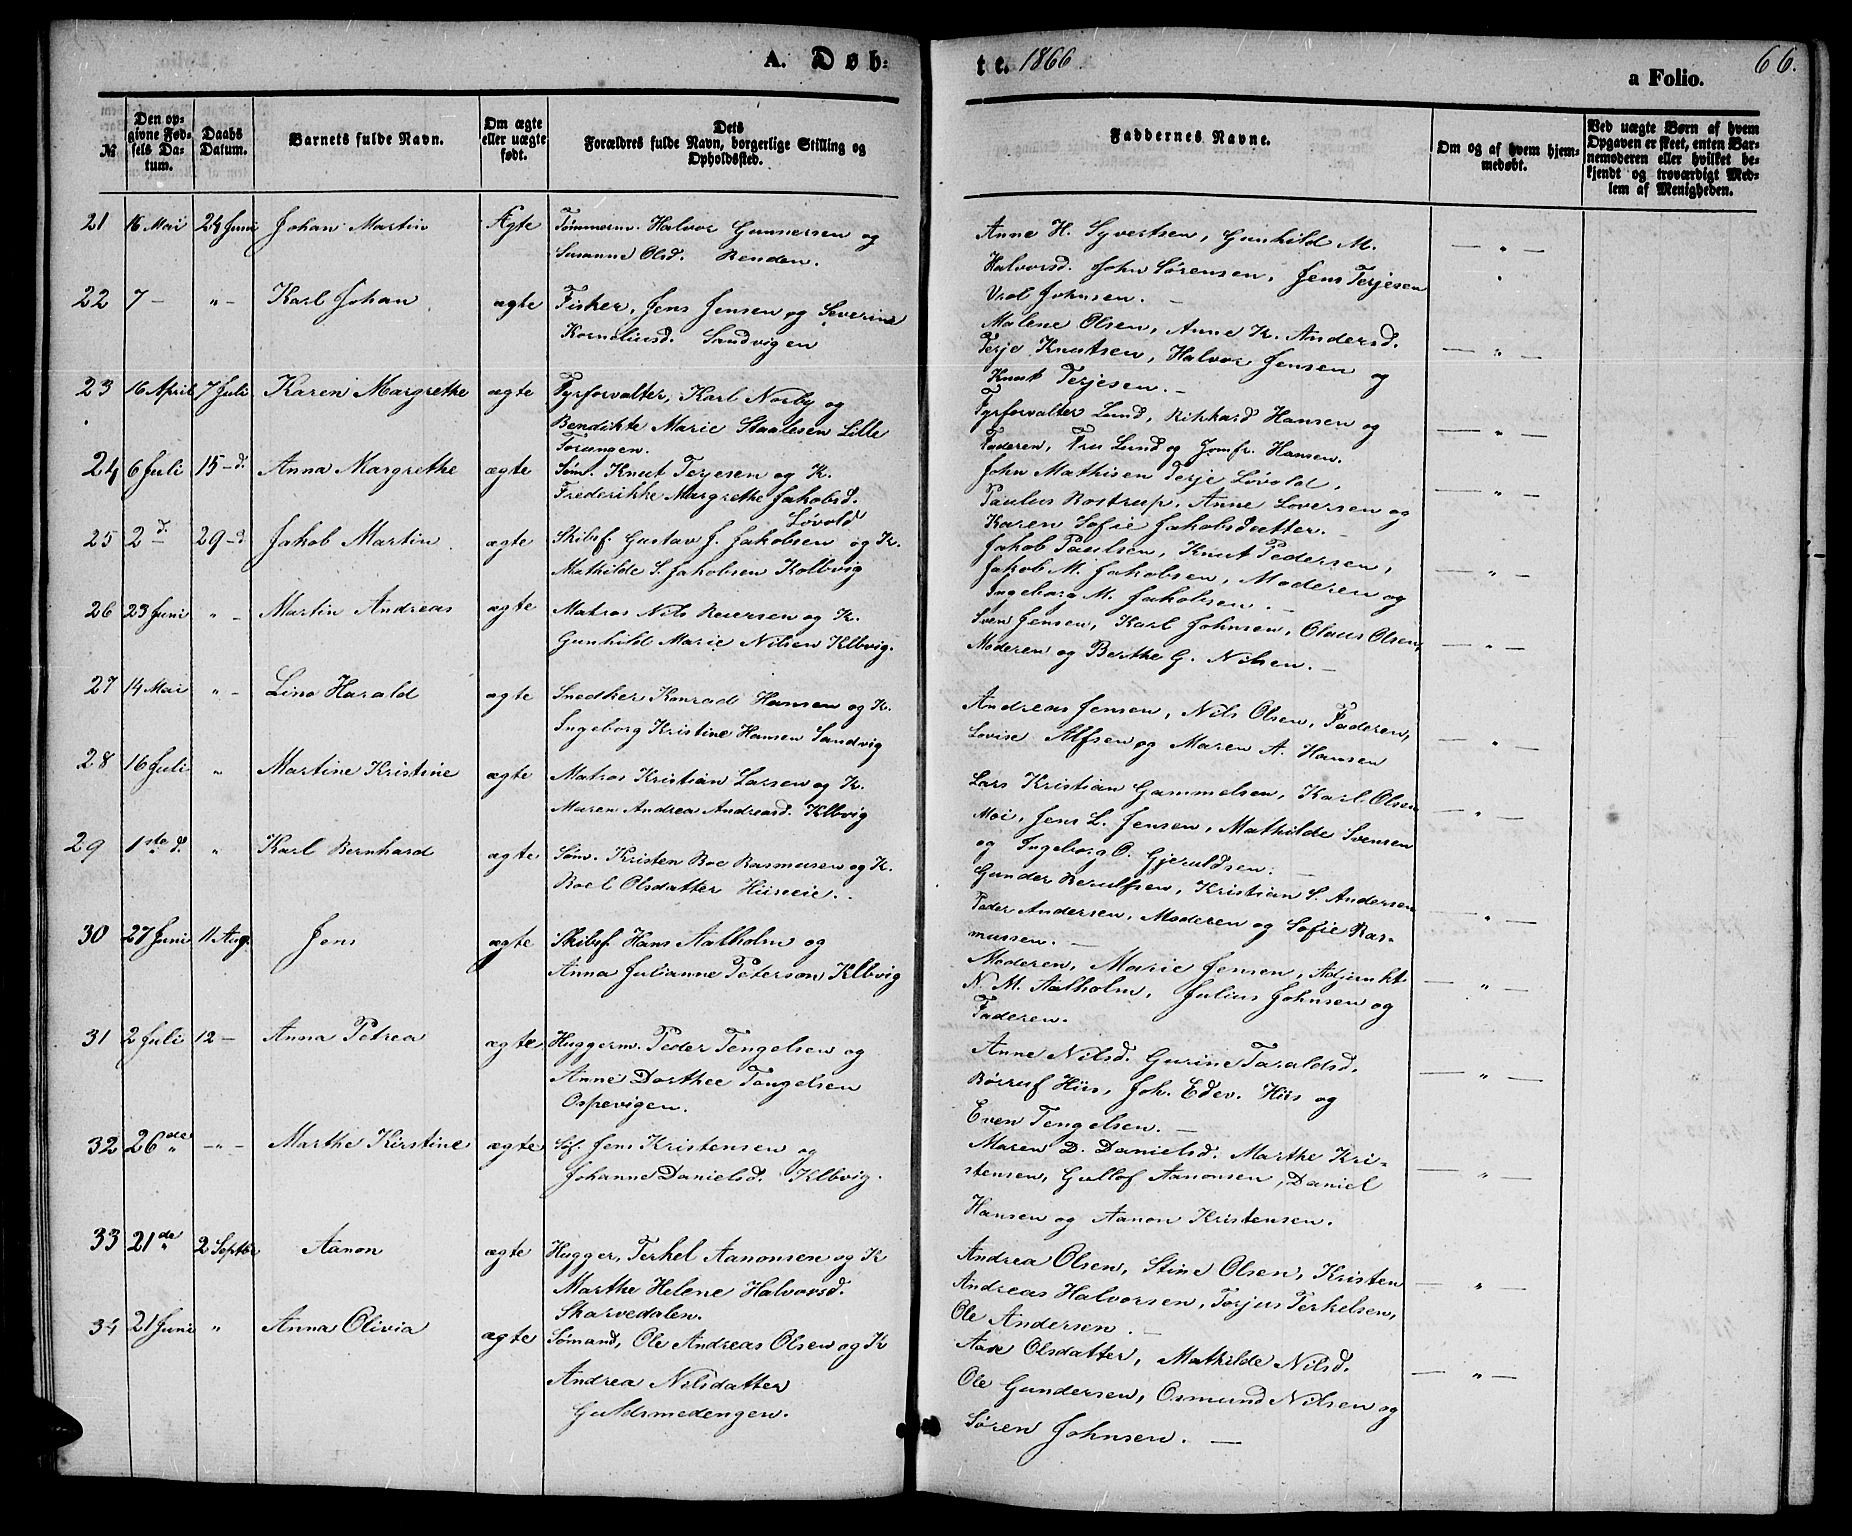 A. Døb=
te. 1866
a Folio.
66.
№
Den op=
givne Fød=
sels Da=
tum.
Daabs
Datum.
Barnets fulde Navn.
Om ægte
eller uægte
født.
Dets
Forældres fulde Navn, borgerlige Stilling og
Opholdssted.
Faddernes Navne.
Om og af hvem hjem=
medøbt.
Ved uægte Børn af hvem
Opgaven er skeet, enten Bar=
nemoderen eller hvilket be=
kjendt og troværdigt Med=
lem af Menigheden.
21 16 Mai 24 Juni Johan Martin Ægte Tømmerm. Halvor Gunnersen og
Susanne Olsd. Renden.
Anne H. Syvertsen, Gunhild M.
Halvorsd. John Sørensen, Jens Terjesen
Vrol Johnsen. —
22 7 — „ — Karl Johan ægte Fisker, Jens Jensen og Severine
Korneliusd. Sandvigen
Malene Olsen, Anne K. Andersd.
Terje Knutsen, Halvor Jensen og
Knut Terjesen. —
23 16 April 7 Juli Karen Margrethe ægte Fyrforvalter, Karl Norby og
Bendikte Marie Staalesen Lille
Torungen.
Fyrforvalter Lund, Rikhard Hansen og
Faderen, Fru Lund og Jomfr. Hansen.
24 6 Juli 15 — d. Anna Margrethe ægte Søm. Knut Terjesen og K.
Frederikke Margrethe Jakobsd.
Løvold
John Mathisen Terje Løvold,
Paulus Rostrup, Anne Loversen og
Karen Sofie Jakobsdatter. —
25 2 d. 29 — d Jakob Martin ægte Skibsf. Gustav J. Jakobsen og K.
Mathilde S. Jakobsen Kolbvig
Jakob Paulsen, Knut Pedersen,
Jakob M. Jakobsen, Moderen og
Ingeborg M. Jakobsen. —
26 23 Juni „ — Martin Andreas ægte Matros Nils Reiersen og K.
Gunhild Marie Nilsen Klbvig.
Sven Jensen, Karl Johnsen, Olaus Olsen,
Moderen og Berthe G. Nilsen. —
27 14 Mai „ — Lino Harald ægte Snedker Konrad Hansen og K.
Ingeborg Kristine Hansen Sandvig
Andreas Jensen, Nils Olsen, Faderen,
Lovise Alfsen og Maren A. Hansen
28 16 Juli „ Martine Kristine ægte Matros Kristian Larsen og K.
Maren Andrea Andreasd. Klbvig
Lars Kristian Gammelsen, Karl Olsen
Moi, Jens L. Jensen, Mathilde Svensen
og Ingeborg O. Gjeruldsen. —
29 1ste d. „ Karl Bernhard ægte Søm. Kristen Roe Rasmusen og K.
Roel Olsdatter Hisseie.
Gunder Berulfsen, Kristian S. Andersen
Peder Andersen, Moderen og Sofie Ras=
mussen. —
30 27 Juni 11 Aug. Jens ægte Skibsf. Hans Aalholm og
Anna Julianne Peterson Klbvig
Moderen, Marie Jensen, Adjunkt
N. M. Aalholm, Julius Johnsen og
Faderen.
31 2 Juli 12 — Anna Petrea ægte Huggerm. Peder Tengelsen og
Anne Dorthee Tengelsen
Ospevigen.
Anne Nilsd. Gurine Taraldsd.
Børruf Hiis, Joh. Edev. Hiis og
Even Tengelsen. —
32 26de — „ — Marthe Kirstine ægte Søf. Jens Kristensen og
Johanne Danielsd. Klbvig.
Maren D. Danielsd. Marthe Kri=
stensen, Gullof Aanonsen, Daniel
Hansen og Aanon Kristensen.
33 21de 2 Septbr Aanon ægte Hugger, Terkel Aanonsen og K
Marthe Helene Halvorsd.
Skarvedalen.
Andrea Olsen, Stine Olsen, Kristen
Andreas Halvorsen, Torjus Terkelsen,
Ole Andersen. —
34 21 Juni „ Anna Olivia ægte Sømand, Ole Andreas Olsen og K
Andrea Nilsdatter
Guldsmedengen.
Aase Olsdatter, Mathilde Nilsd.
Ole Gundersen, Osmund Nilsen og
Søren Johnsen. —